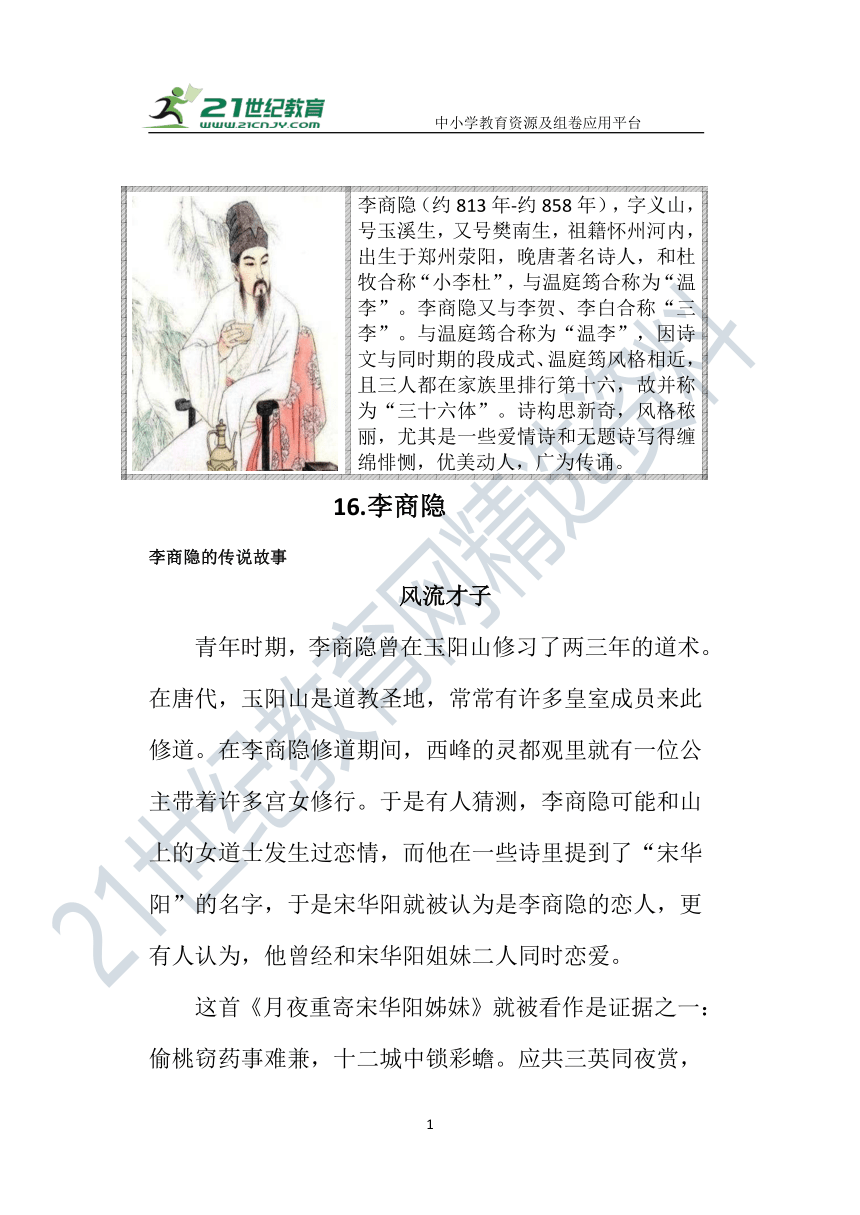 21世纪教育
WWW.21CNJY.COM
中小学教育资源及组卷应用平台
李商隐（约 813 年-约 858 年），字义山，
号玉溪生，又号樊南生，祖籍怀州河内，
出生于郑州荥阳，晚唐著名诗人，和杜
牧合称“小李杜”，与温庭筠合称为“温
李”。李商隐又与李贺、李白合称“三
李”。与温庭筠合称为“温李”，因诗
文与同时期的段成式、温庭筠风格相近，
且三人都在家族里排行第十六，故并称
为“三十六体”。诗构思新奇，风格秾
丽，尤其是一些爱情诗和无题诗写得缠
绵悱恻，优美动人，广为传诵。
16.李商隐
李商隐的传说故事
风流才子
青年时期，李商隐曾在玉阳山修习了两三年的道术。
在唐代，玉阳山是道教圣地，常常有许多皇室成员来此
修道。在李商隐修道期间，西峰的灵都观里就有一位公
主带着许多宫女修行。于是有人猜测，李商隐可能和山
上的女道士发生过恋情，而他在一些诗里提到了“宋华
阳”的名字，于是宋华阳就被认为是李商隐的恋人，更
有人认为，他曾经和宋华阳姐妹二人同时恋爱。
这首《月夜重寄宋华阳姊妹》就被看作是证据之一：
偷桃窃药事难兼，十二城中锁彩蟾。应共三英同夜赏，
1
21世纪教育网精选资料